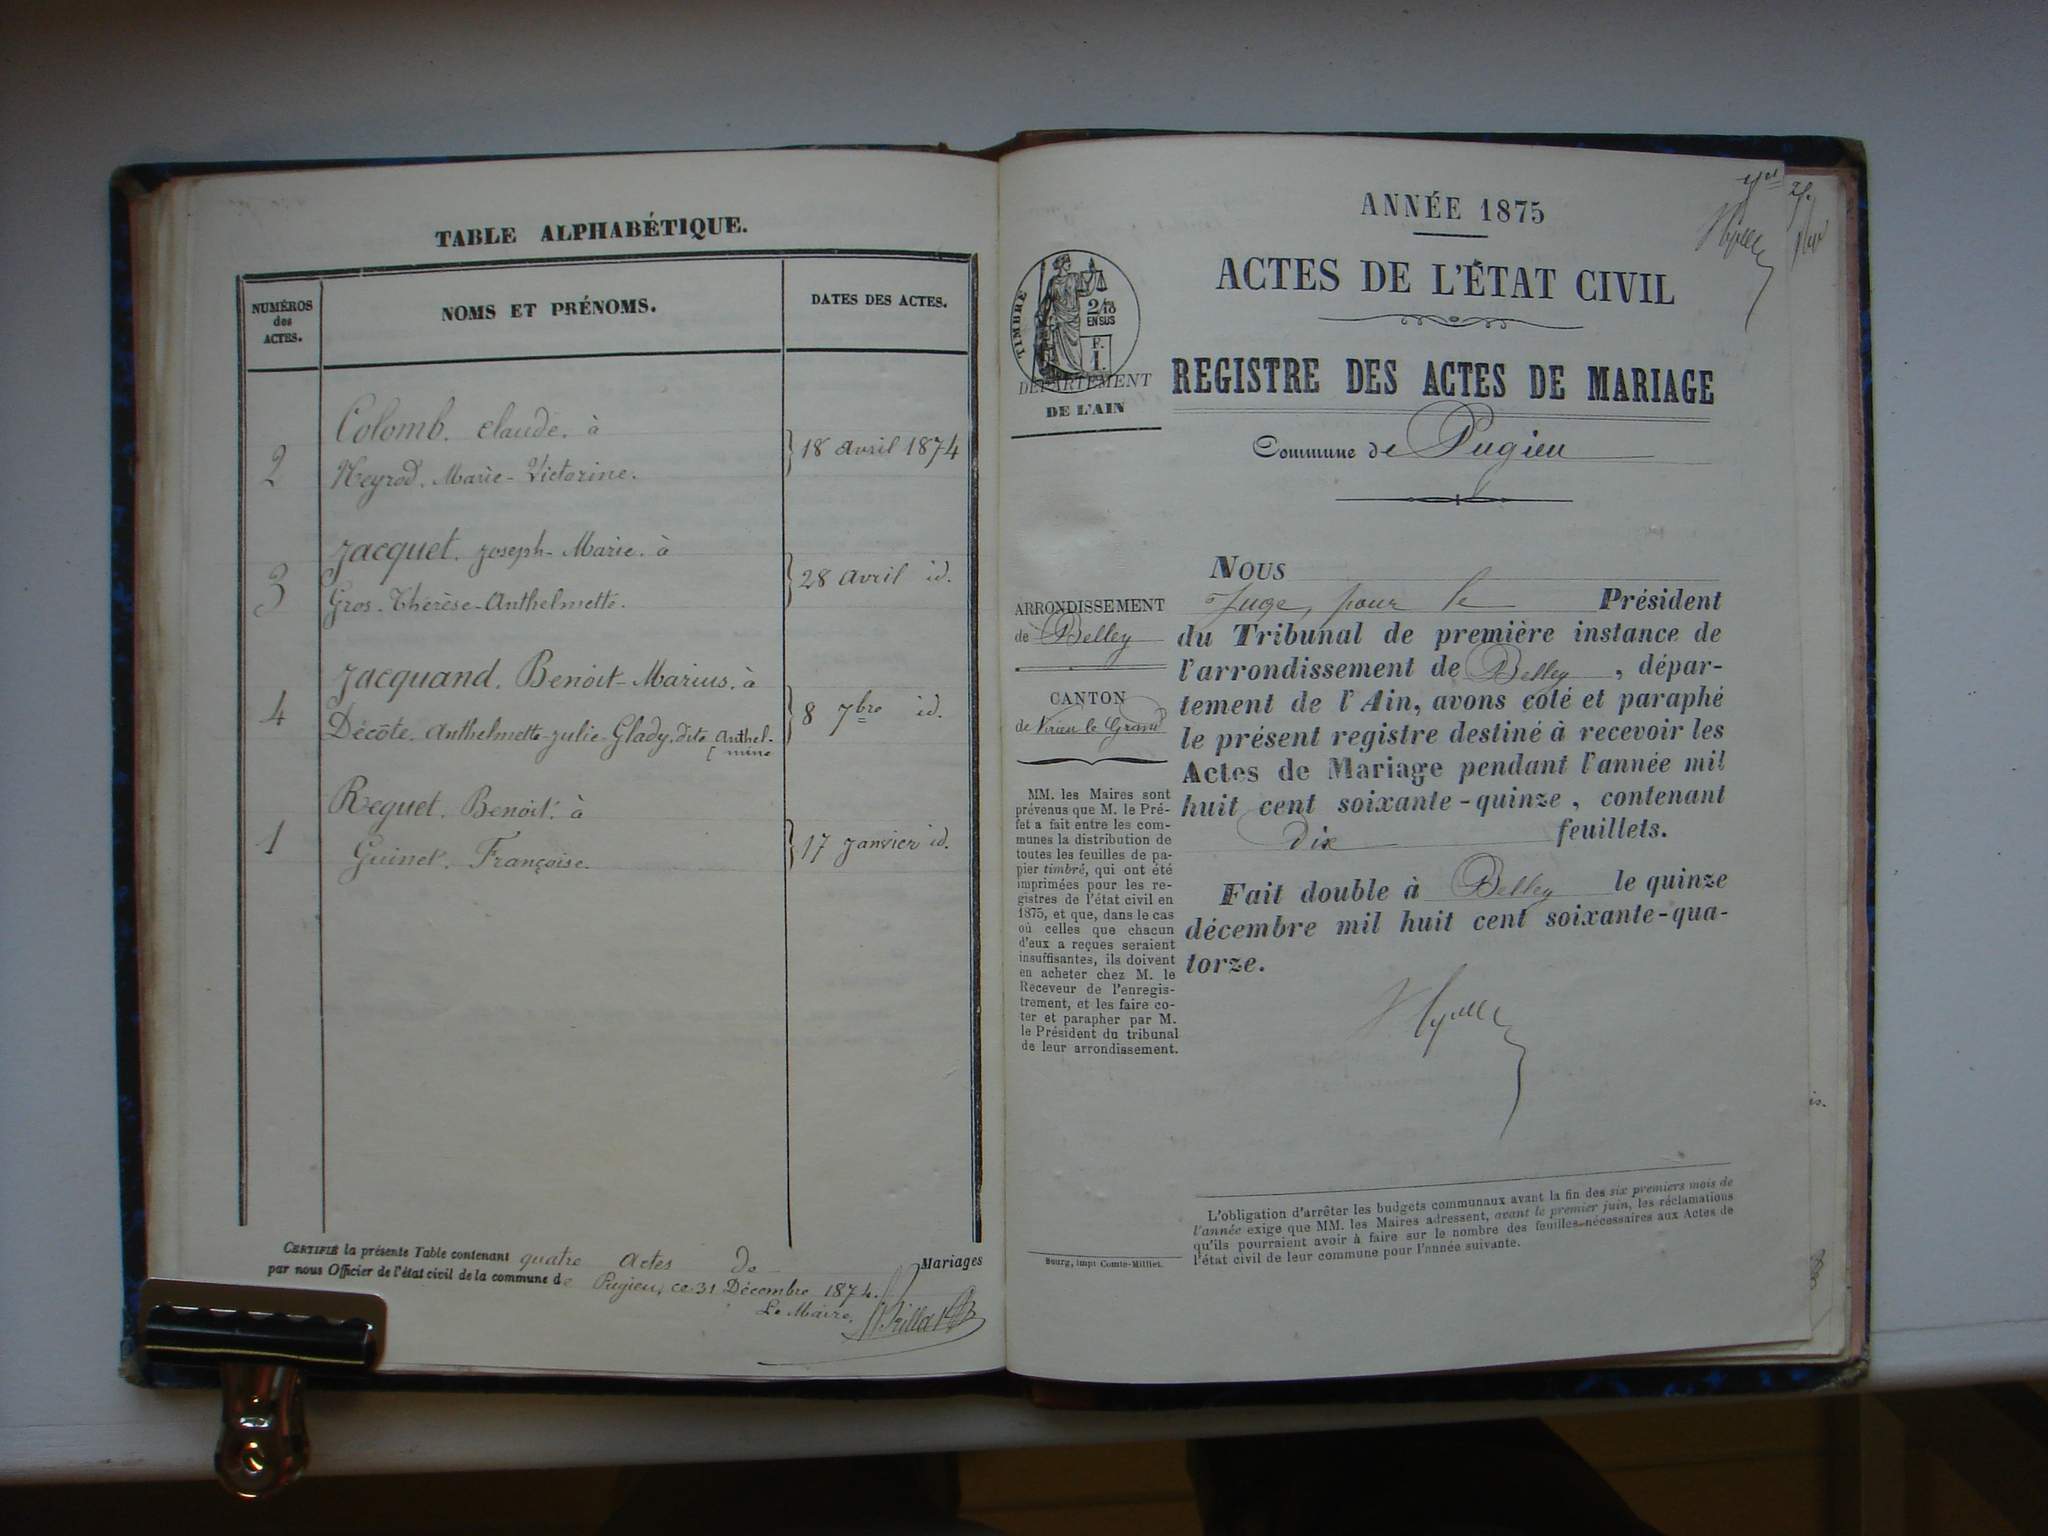 TABLE ALPHABÉTIQUE.
NUMÉROS
des
ACTES.
NOMS ET PRÉNOMS.
DATES DES ACTES.
Colomb. Claude. à
2
Neyrod. Marie-Victorine.
18 Avril 1874
Jacquet. Joseph-Marie. à
3
Gros. Thérèse-Anthelmette.
28 Avril id.
Jacquand. Benoit-Marius. à
4
Décôte. Anthelmette-Julie-Glady. dite Anthel-
mine
8 7bre id.
Reguet. Benoit. à
1
Guinet. Françoise.
17 Janvier id.
CERTIFIÉ la présente Table contenant quatre Actes de Mariages
par nous Officier de l'état civil de la commune de Pugieu, ce 31 Décembre 1874.
Le Maire,
ANNÉE 1875
ACTES DE L'ÉTAT CIVIL
TIMBRE
2/10
EN SUS
F.
1.
DÉPARTEMENT
DE L'AIN
REGISTRE DES ACTES DE MARIAGE
Commune de Pugieu
ARRONDISSEMENT
de Belley
CANTON
de Virieu le Grand
MM. les Maires sont
prévenus que M. le Pré-
fet a fait entre les com-
munes la distribution de
toutes les feuilles de pa-
pier timbré, qui ont été
imprimées pour les re-
gistres de l'état civil en
1875, et que, dans le cas
où celles que chacun
d'eux a reçues seraient
insuffisantes, ils doivent
en acheter chez M. le
Receveur de l'enregis-
trement, et les faire co-
ter et parapher par M.
le Président du tribunal
de leur arrondissement.
NOUS
Juge, pour le Président
du Tribunal de première instance de
l'arrondissement de Belley, dépar-
tement de l'Ain, avons coté et paraphé
le présent registre destiné à recevoir les
Actes de Mariage pendant l'année mil
huit cent soixante-quinze, contenant
Dix feuillets.
Fait double à Belley le quinze
décembre mil huit cent soixante-qua-
torze.
L'obligation d'arrêter les budgets communaux avant la fin des six premiers mois de
l'année exige que MM. les Maires adressent, avant le premier juin, les réclamations
qu'ils pourraient avoir à faire sur le nombre des feuilles nécessaires aux Actes de
l'état civil de leur commune pour l'année suivante.
Bourg, impr Comte-Milliet.